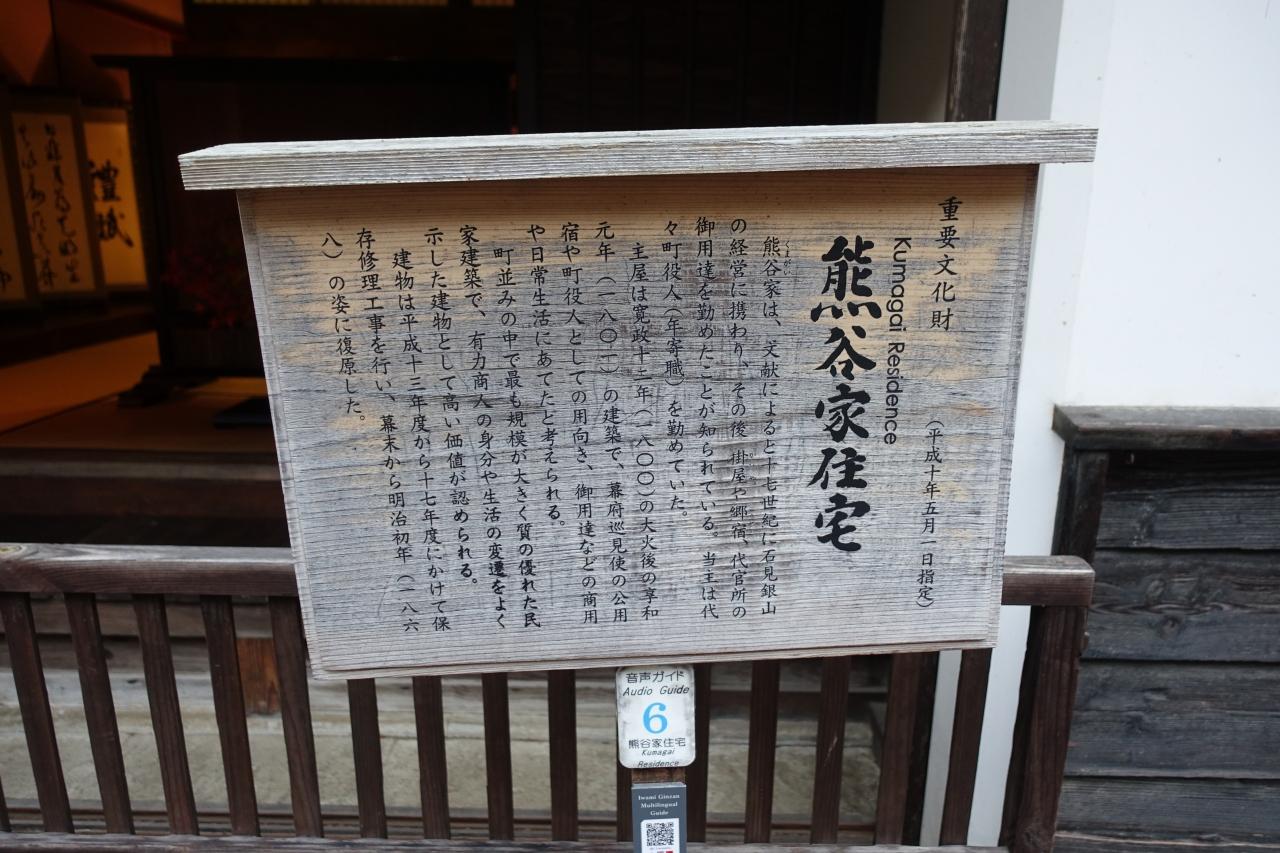 重要文化財
(平成十年五月一日指定)
Kumagai Residence
熊谷家住宅
くまがい
熊谷家は、文献によると十七世紀に石見銀山
の経営に携わり、その後掛屋や郷宿、代官所の
御用達を勤めたことが知られている。当主は代
々町役人(年寄職)を勤めていた。
主屋は寛政十二年(一八〇〇)の大火後の享和
元年(一八〇一)の建築で、幕府巡見使の公用
宿や町役人としての用向き、御用達などの商用
や日常生活にあてたと考えられる。
町並みの中で最も規模が大きく質の優れた民
家建築で、有力商人の身分や生活の変遷をよく
示した建物として高い価値が認められる。
建物は平成十三年度から十七年度にかけて保
存修理工事を行い、幕末から明治初年(一八六
八)の姿に復原した。
音声ガイド
Audio Guide
6
熊谷家住宅
Kumagai
Residence
Iwami Ginzan
Multilingual
Guide